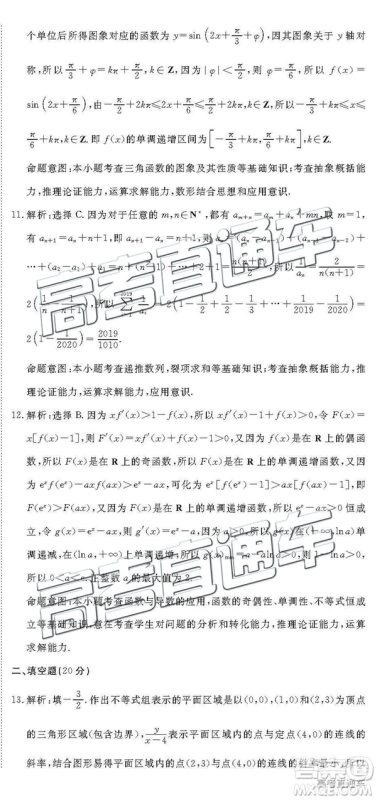 个单位后所得图象对应的函数为 y=sin(2x+π/3+φ),因其图象关于 y 轴对
称,所以 π/3+φ=kπ+π/2,k∈Z,因为|φ|<π/2,则 φ=π/6,所以 f(x)=
sin(2x+π/6),由-π/2+2kπ≤2x+π/6≤π/2+2kπ,k∈Z,所以-π/3+kπ≤x≤
π/6+kπ,k∈Z.即 f(x)的单调递增区间为[-π/3+kπ,π/6+kπ],k∈Z.
命题意图:本小题考查三角函数的图象及其性质等基础知识;考查抽象概括能
力,推理论证能力,运算求解能力,数形结合思想和应用意识.
11.解析:选择 C.因为对于任意的 m,n∈N*,都有 aₘ₊ₙ=aₘ+aₙ+mn,取 m=1,
有 aₙ₊₁=aₙ+n+1,即 aₙ₊₁-aₙ=n+1,所以 aₙ=(aₙ-aₙ₋₁)+(aₙ₋₁-aₙ₋₂)+
…+(a₂-a₁)+a₁=n+(n-1)+…+2+1=n(n+1)/2,所以 1/aₙ=2/(n(n+1))=
2(1/n-1/(n+1)),所以 =2(1-1/2+1/2-1/3+…+1/2019-1/2020)=
2(1-1/2020)=2019/1010.
命题意图:本小题考查递推数列,裂项求和等基础知识;考查抽象概括能力,推
理论证能力,运算求解能力,应用意识.
12.解析:选择 B.因为 xf′(x)>1-f(x),所以 xf′(x)-1+f(x)>0,令 F(x)=
x[f(x)-1],则 F′(x)=xf′(x)+f(x)-1>0,又因为 f(x)是在 R 上的偶函
数,所以 F(x)是在 R 上的奇函数,所以 F(x)是在 R 上的单调递增函数,又因
为 eˣf(eˣ)-axf(ax)>eˣ-ax,可化为 eˣ[f(eˣ)-1]>ax[f(ax)-1],即
F(eˣ)>F(ax),又因为 F(x)是在 R 上的单调递增函数,所以 eˣ-ax>0 恒成
立,令 g(x)=eˣ-ax,则 g′(x)=eˣ-a,因为 a>0,所以 g(x)在(-∞,ln a)单
调递减,在(ln a,+∞)上单调递增,所以 g(x)ₘᵢₙ=a-aln a>0,则 1-ln a>0,
所以 0<a<e.正整数 a 的最大值为 2.
命题意图:本小题考查函数与导数的应用,函数的奇偶性、单调性、不等式等基
础知识,意在考查学生对问题的分析和转化能力,推理论证能力,运算求解
能力.
二、填空题(20 分)
13.解析:填-3/2.作出不等式组表示的平面区域是以(0,0),(1,0)和(2,3)为顶点
的三角形区域(包含边界),y/(x-4)表示平面区域内的点与定点(4,0)的连线的
斜率,结合图形易得平面区域内的点(2,3)与定点(4,0)的连线的
高考直通车